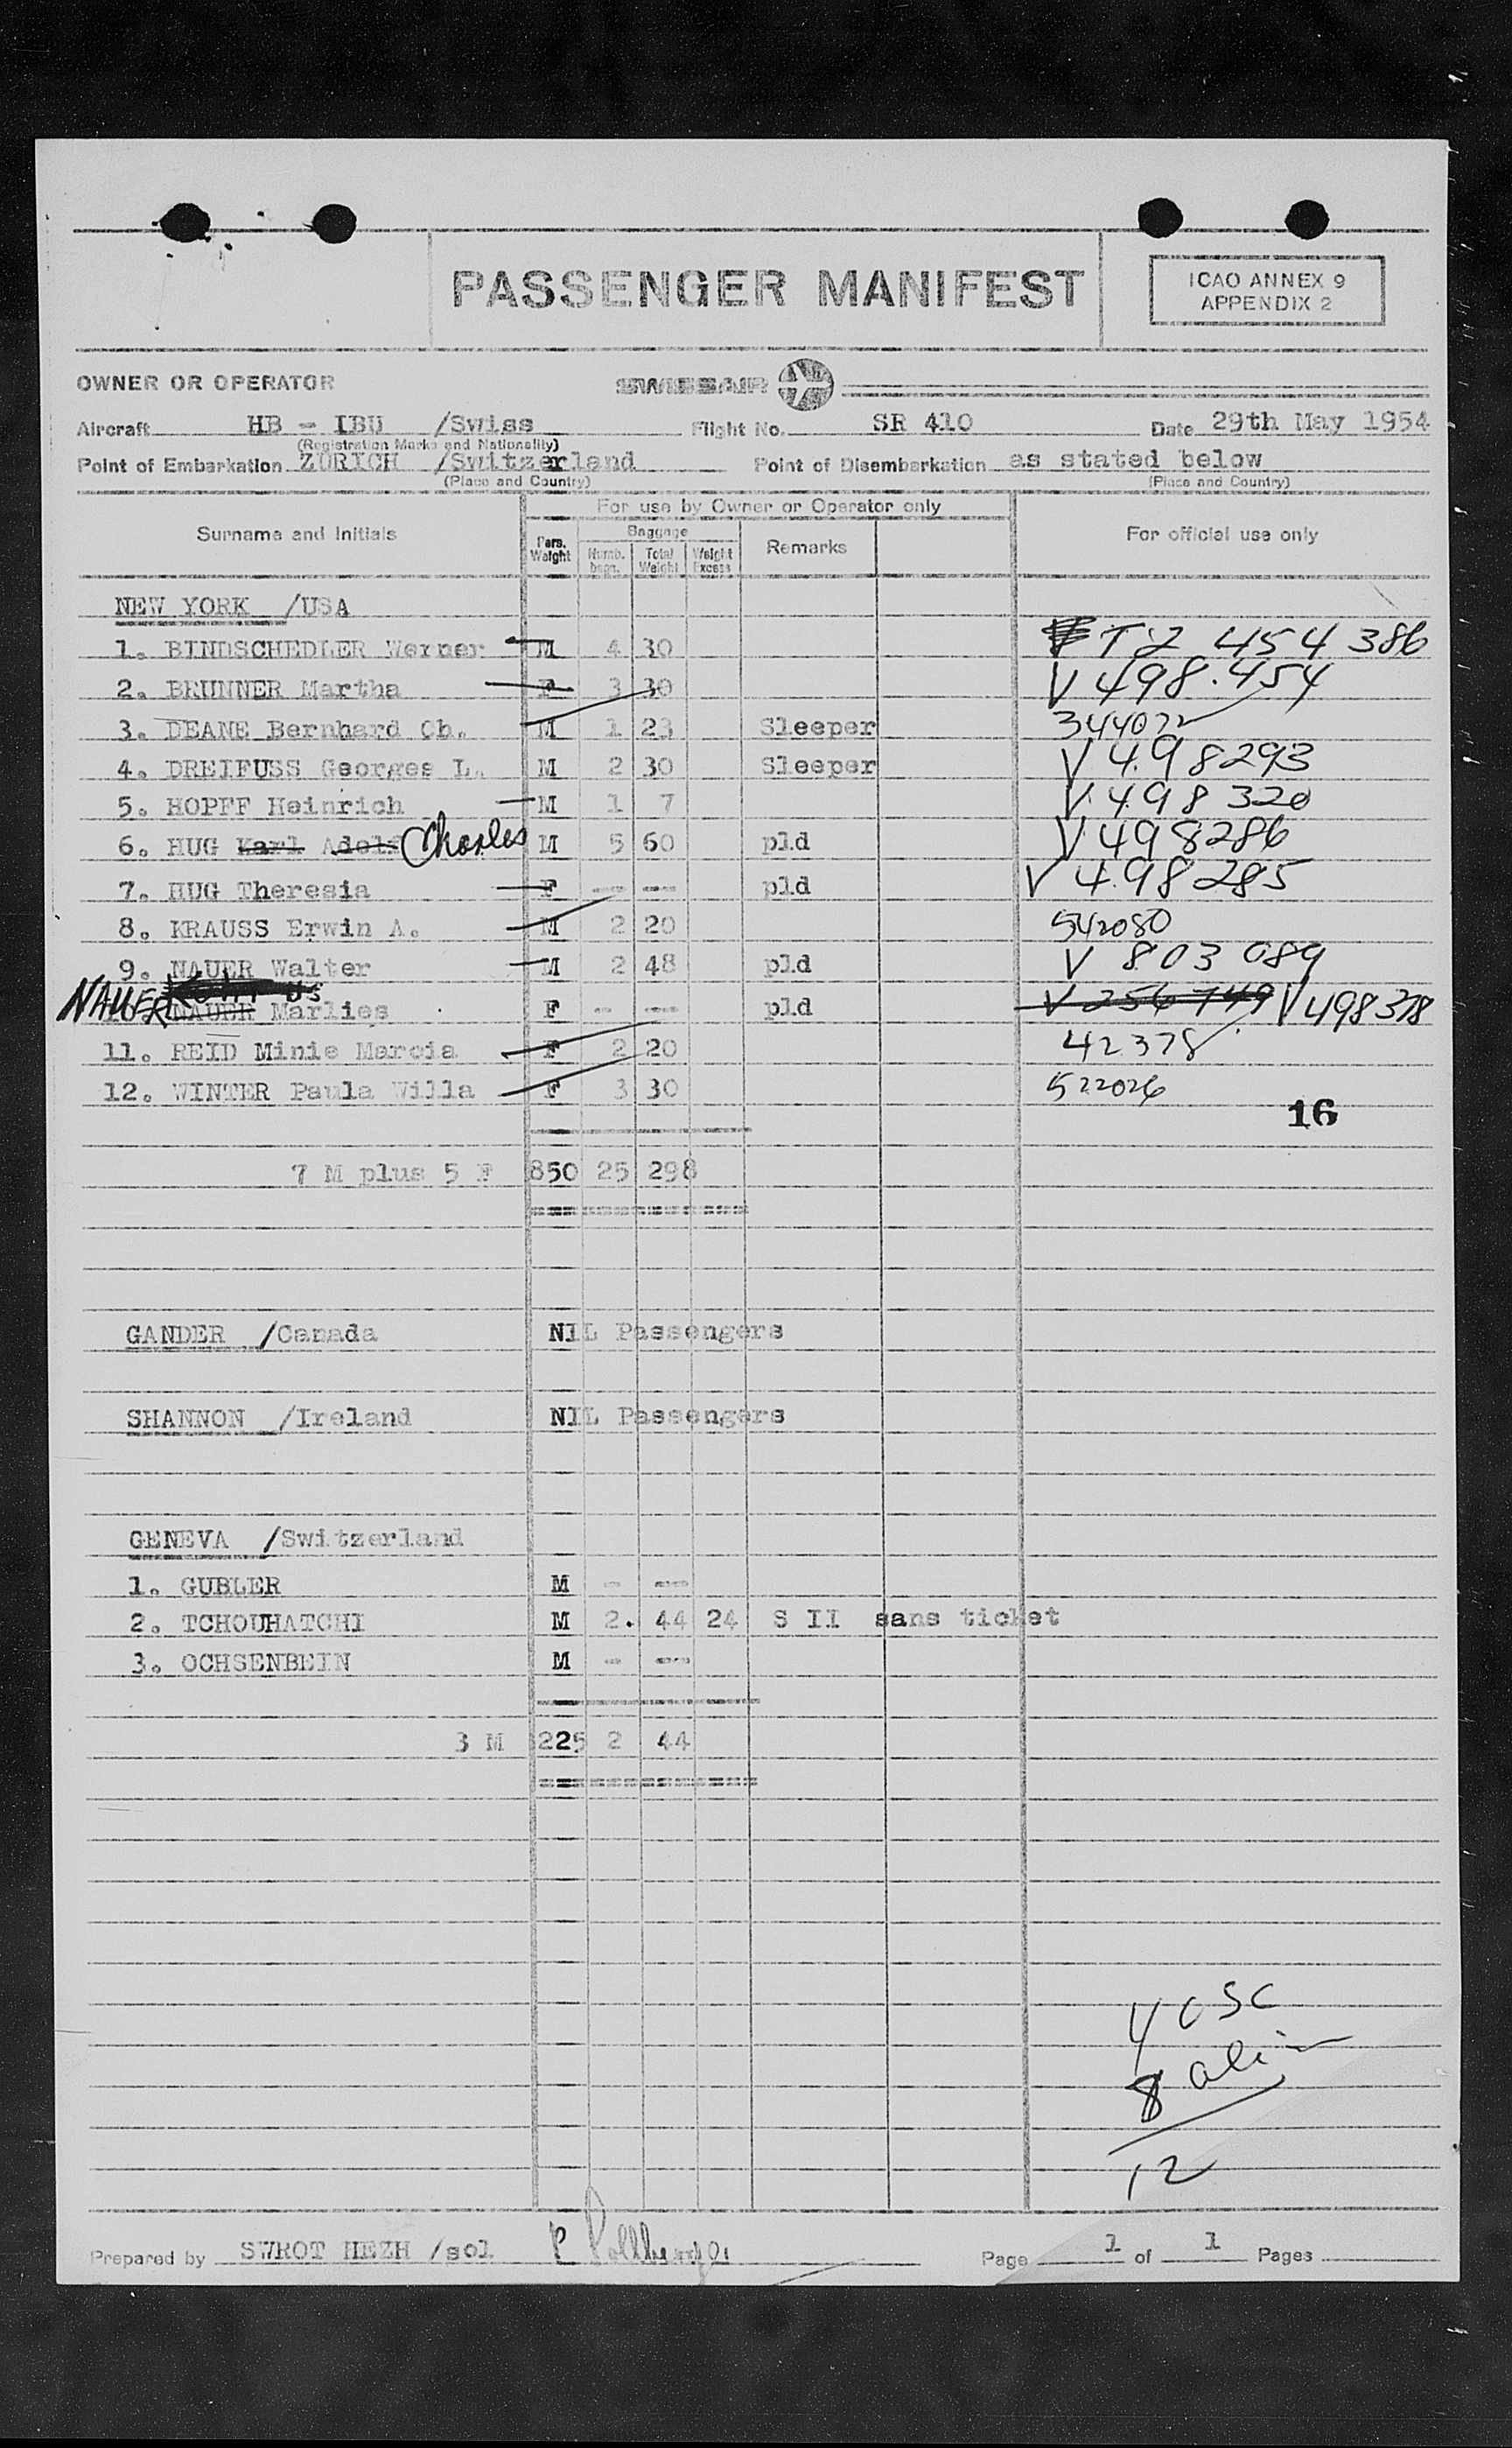 PASSENGER MANIFEST
ICAO ANNEX 9
APPENDIX 2
OWNER OR OPERATOR SWISSAIR
Aircraft HB - IBU /Swiss Flight No. SR 410 Date 29th May 1954
(Registration Marks and Nationality)
Point of Embarkation ZÜRICH /Switzerland Point of Disembarkation as stated below
(Place and Country) (Place and Country)
For use by Owner or Operator only
Surname and Initials Pers. Weight Baggage Numb. bags. Total Weight Weight Excess Remarks For official use only
NEW YORK /USA
1. BINDSCHEDLER Werner M 4 30 T2 454 386
2. BRUNNER Martha F 3 30 V 498.454
3. DEANE Bernhard Ch. M 1 23 Sleeper 344072
4. DREIFUSS Georges L. M 2 30 Sleeper V 498293
5. HOPFF Heinrich M 1 7 V 498 320
6. HUG Karl Adolf Charles M 5 60 pld V 498286
7. HUG Theresia F -- --- pld V 498285
8. KRAUSS Erwin A. M 2 20 542080
9. NAUER Walter M 2 48 pld V 803 089
NAUER NAUER Marlies F - --- pld V 256749 V498378
11. REID Minie Marcia F 2 20 42378
12. WINTER Paula Willa F 3 30 522026
16
7 M plus 5 F 850 25 298
GANDER /Canada NIL Passengers
SHANNON /Ireland NIL Passengers
GENEVA /Switzerland
1. GUBLER M - ---
2. TCHOUHATCHI M 2. 44 24 S II sans ticket
3. OCHSENBEIN M - ---
3 M 225 2 44
4 USC
8 alien
12
Prepared by SWROT HEZH /sol Page 1 of 1 Pages